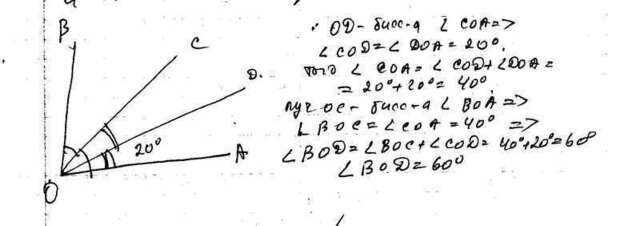 B
C
D.
20°
A
O
∵ OD - бисс-а ∠ COA =>
∠ COD = ∠ DOA = 20°,
∠ COA = ∠ COD + ∠DOA =
= 20° + 20° = 40°
луч OC - бисс-а ∠ BOA =>
∠ BOC = ∠ COA = 40° =>
∠ BOD = ∠BOC + ∠COD = 40°+20°=60
∠ BO.D = 60°